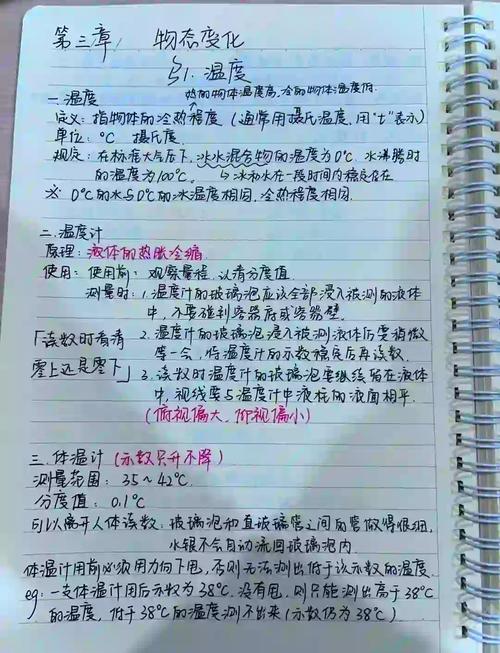 第三章 物态变化
§1. 温度
一. 温度 热的物体温度高, 冷的物体温度低
定义: 指物体的冷热程度 (通常用摄氏温度, 用"t"表示)
单位: °C 摄氏度
规定: 在标准大气压下, 冰水混合物的温度为0°C 水沸腾时
的温度为100°C. 冰和水在一段时间内稳定存在
※ 0°C的水与0°C的冰温度相同, 冷热程度相同.
二. 温度计
原理: 液体的热胀冷缩
使用: 使用前: 观察量程, 认清分度值
测量时: 1. 温度计的玻璃泡应该全部浸入被测的液体
中, 不要碰到容器底或容器壁
「读数时看清
零上还是零下」
2. 温度计的玻璃泡浸入被测液体后要稍微
等一会, 待温度计的示数稳定后再读数.
3. 读数时温度计的玻璃泡要继续留在液体
中, 视线要与温度计中液柱的液面相平.
(俯视偏大, 仰视偏小)
三. 体温计 (示数只升不降)
测量范围: 35~42°C
分度值: 0.1°C
可以离开人体读数: 玻璃泡和直玻璃管之间的管做得很细,
水银不会自动流回玻璃泡内
体温计用前必须用力向下甩, 否则无法测出低于该示数的温度.
eg: 一支体温计用后示数为38°C, 没有甩, 则只能测出高于38°C
的温度, 低于38°C的温度测不出来 (示数仍为38°C)